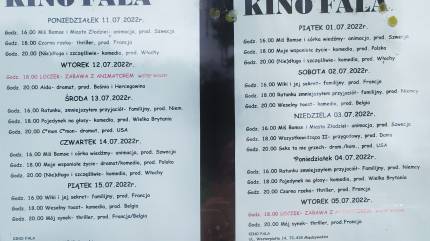 KINO FALA
PONIEDZIAŁEK 11.07.2022r.
Godz. 16.00 Miś Bamse i Miasto Złodziei- animacja, prod. Szwecja
Godz. 18.00 Czarna rzeka- thriller, prod. Francja
Godz. 20.00 (Nie)długo i szczęśliwie- komedia, prod. Włochy
WTOREK 12.07.2022r.
Godz. 18.00 LOCZEK- ZABAWA Z ANIMATOREM wstęp wolny
Godz. 20.00 Aida- dramat, prod. Bośnia i Hercegowina
ŚRODA 13.07.2022r.
Godz. 16.00 Rufus- przyjaciel- familijny, prod. Niem.
Godz. 18.00 Pojedynek na głosy- komedia, prod. Wielka Brytania
Godz. 20.00 C'mon C'mon- dramat, prod. USA
CZWARTEK 14.07.2022r.
Godz. 16.00 Miś Bamse i córka wiedźmy- animacja, prod. Szwecja
Godz. 18.00 Moje wspaniałe życie- dramat/komedia, prod. Polska
Godz. 20.00 (Nie)długo i szczęśliwie- komedia, prod. Włochy
PIĄTEK 15.07.2022r.
Godz. 16.00 Wiki i jej sekret- familijny, prod. Francja
Godz. 18.00 Weselny toast- komedia, prod. Belgia
Godz. 20.00 Mój synek- thriller, prod. Francja/Belgia
KINO FALA
KINO FALA
PIĄTEK 01.07.2022r.
Godz. 16.00 Miś Bamse i córka wiedźmy- animacja, prod. Szwecja
Godz. 18.00 Moje wspaniałe życie- komedia, prod. Polska
Godz. 20.00 (Nie)długo i szczęśliwie- komedia, prod. Włochy
SOBOTA 02.07.2022r.
Godz. 16.00 Wiki i jej sekret- familijny, prod. Francja
Godz. 18.00 Ratunku, zmniejszyłem przyjaciół- familijny, prod. Niemcy
Godz. 20.00 Weselny toast- komedia, prod. Belgia
NIEDZIELA 03.07.2022r.
Godz. 16.00 Miś Bamse i Miasto Złodziei- animacja, prod. Szwecja
Godz. 18.00 prod. Dania
Godz. 20.00
Poniedziałek 04.07.2022r.
Godz. 16.00 Ratunku, zmniejszyłem przyjaciół- familijny, prod. Niemcy
Godz. 18.00 Pojedynek na głosy- komedia, prod. Wielka Brytania
Godz. 20.00 Czarna rzeka- thriller, prod. Francja
WTOREK 05.07.2022r.
Godz. 18.00 LOCZEK- ZABAWA Z
Godz. 20.00 Mój synek- thriller, prod. Francja
KINO FALA